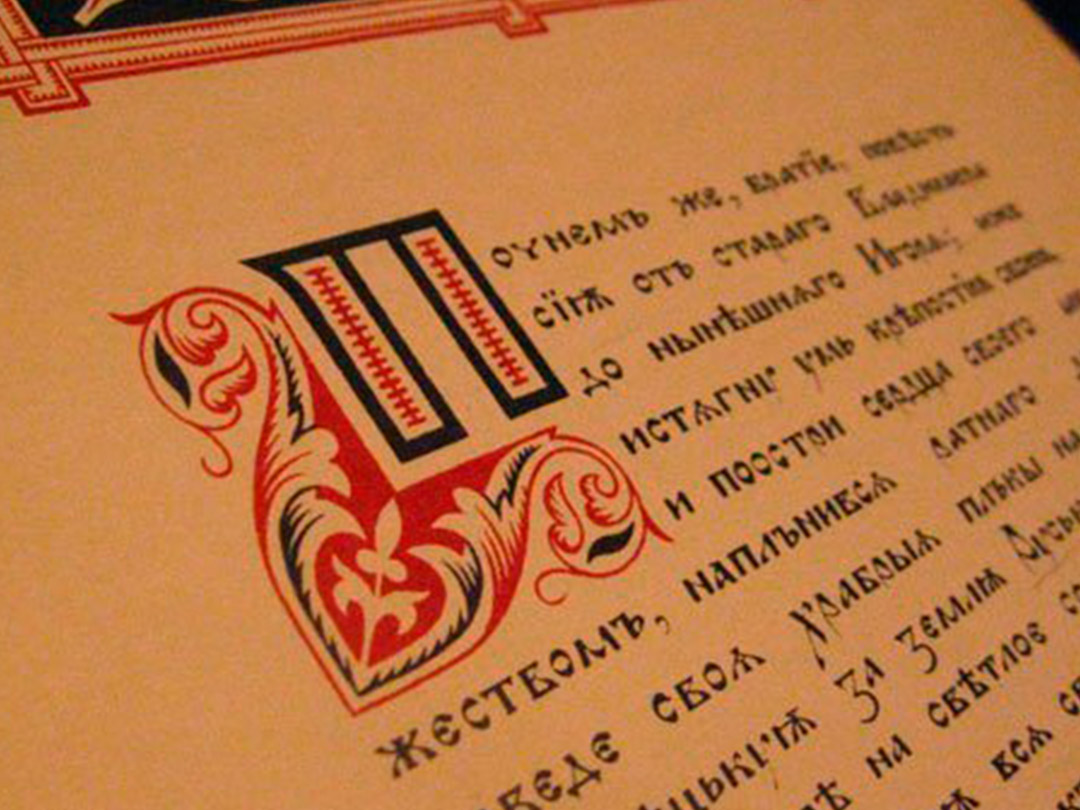 Почнемъ же, братїе, повѣсть
сїѭ отъ стараго Владимера
до нынѣшняго Игоря, иже
истягну умь крѣпостїю своею
и поостри сердца своего
жествомъ, наплънився ратнаго
веде своѧ храбрыѧ плъкы на
за землѭ Руськ
на свѣтлое
всѧ